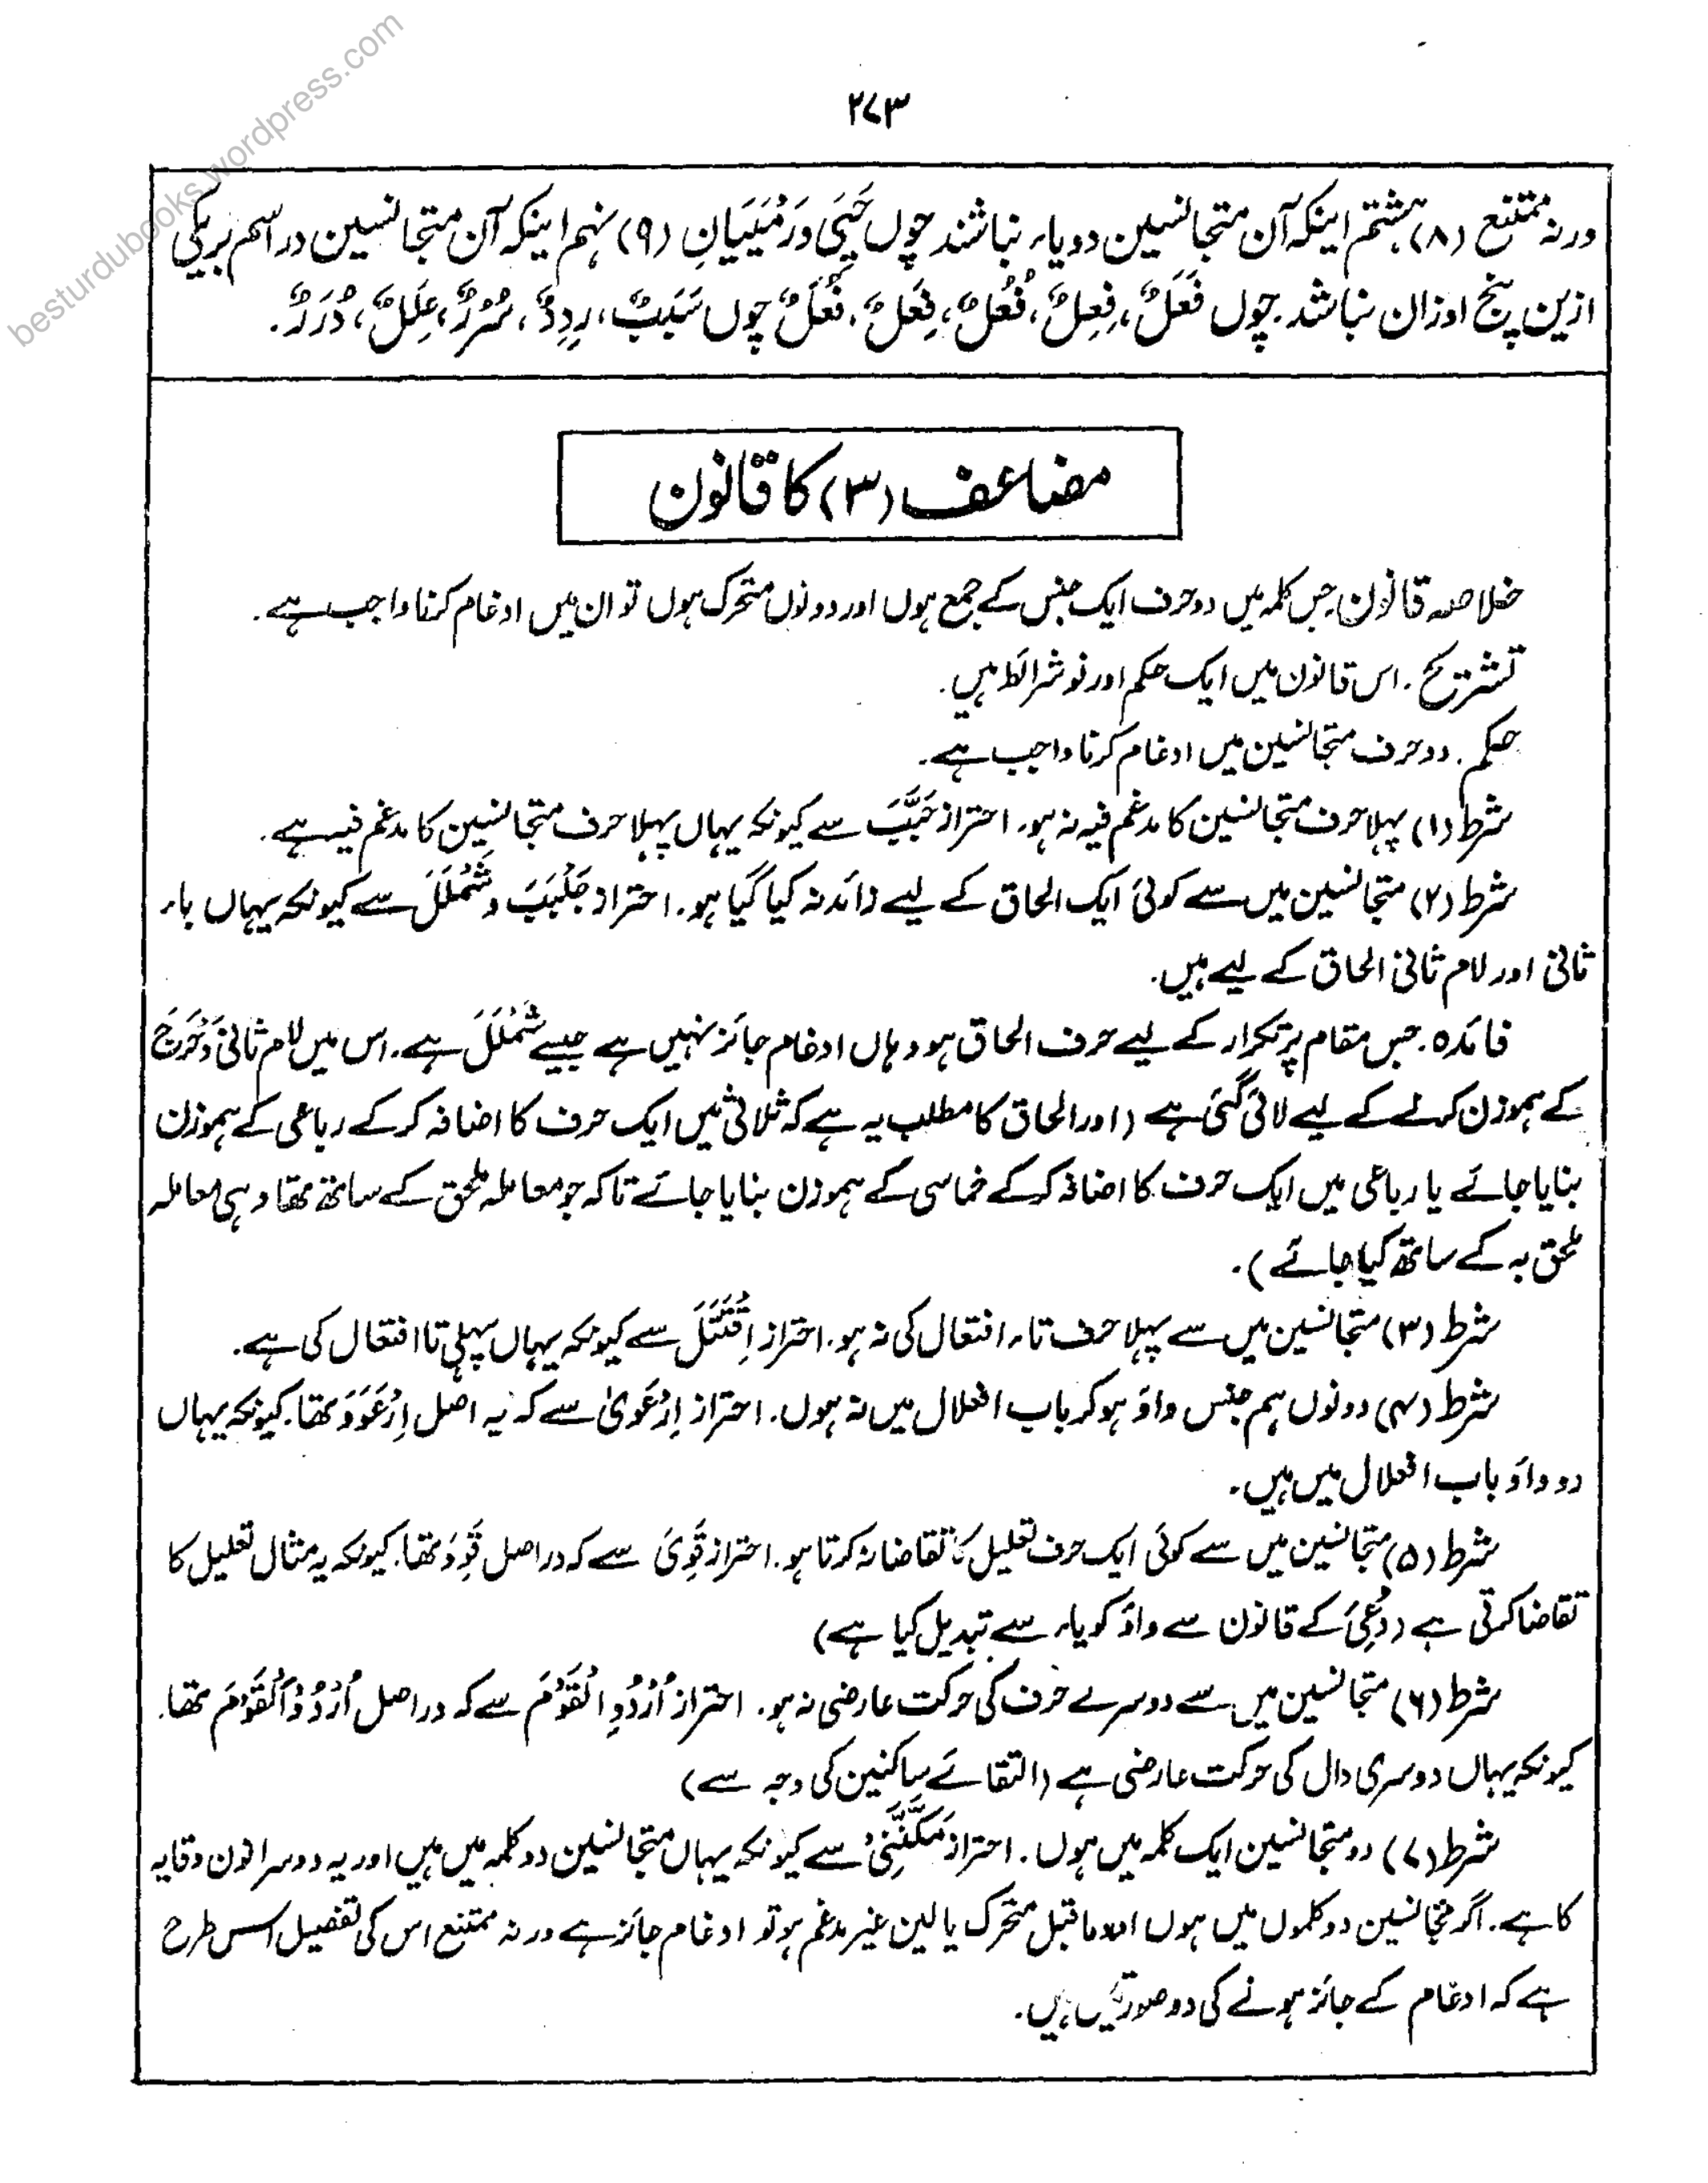 besturdubooks.wordpress.com
۲۷۳
ورنہ ممتنع (۸) ہشتم اینکہ آن متجانسین دو یاء نباشند چوں حَیِیَ وَرَمْیَیَانِ (۹) نہم اینکہ آن متجانسین در اسم بر یکی
ازین پنج اوزان نباشد. چوں فَعَلٌ، فِعِلٌ، فُعُلٌ، فِعَلٌ، فُعَلٌ چوں سَبَبٌ، رِدِدٌ، سُرُرٌ، عِلَلٌ، دُرَرٌ.
مضاعف (۳) کا قانون
خلاصہ قانون۔ جس کلمہ میں دو حرف ایک جنس کے جمع ہوں اور دونوں متحرک ہوں تو ان میں ادغام کرنا واجب ہے۔
تشریح۔ اس قانون میں ایک حکم اور نو شرائط ہیں۔
حکم۔ دو حرف متجانسین میں ادغام کرنا واجب ہے۔
شرط (۱) پہلا حرف متجانسین کا مدغم فیہ نہ ہو۔ احتراز حَبَّبَ سے کیونکہ یہاں پہلا حرف متجانسین کا مدغم فیہ ہے۔
شرط (۲) متجانسین میں سے کوئی ایک الحاق کے لیے زائد نہ کیا گیا ہو۔ احتراز جَلْبَبَ و شَمْلَلَ سے کیونکہ یہاں باء
ثانی اور لام ثانی الحاق کے لیے ہیں۔
فائدہ۔ جس مقام پر تکرار کے لیے حرف الحاق ہو وہاں ادغام جائز نہیں ہے جیسے شَمْلَلَ ہے۔ اس میں لام ثانی دَحْرَجَ
کے ہموزن کرنے کے لیے لائی گئی ہے (اور الحاق کا مطلب یہ ہے کہ ثلاثی میں ایک حرف کا اضافہ کر کے رباعی کے ہموزن
بنایا جائے یا رباعی میں ایک حرف کا اضافہ کرکے خماسی کے ہموزن بنایا جائے تاکہ جو معاملہ ملحق کے ساتھ تھا وہی معاملہ
ملحق بہ کے ساتھ کیا جائے)۔
شرط (۳) متجانسین میں سے پہلا حرف تاء افتعال کی نہ ہو۔ احتراز اِقْتَتَلَ سے کیونکہ یہاں پہلی تا افتعال کی ہے۔
شرط (۴) دونوں ہم جنس واؤ ہو کر باب افعلال میں نہ ہوں۔ احتراز اِرْعَوٰی سے کہ یہ اصل اِرْعَوَوَ تھا۔ کیونکہ یہاں
دو واؤ باب افعلال میں ہیں۔
شرط (۵) متجانسین میں سے کوئی ایک حرف تعلیل کا تقاضا نہ کرتا ہو۔ احتراز قَوِیَ سے کہ دراصل قَوِوَ تھا۔ کیونکہ یہ مثال تعلیل کا
تقاضا کرتی ہے (دُعِیَ کے قانون سے واؤ کو یاء سے تبدیل کیا ہے)
شرط (۶) متجانسین میں سے دوسرے حرف کی حرکت عارضی نہ ہو۔ احتراز اُرْدُدِ الْقَوْمَ سے کہ دراصل اُرْدُدْ اَلْقَوْمَ تھا۔
کیونکہ یہاں دوسری دال کی حرکت عارضی ہے (التقائے ساکنین کی وجہ سے)
شرط (۷) دو متجانسین ایک کلمہ میں ہوں۔ احتراز مَکَّنَنِیْ سے کیونکہ یہاں متجانسین دو کلمہ میں ہیں اور یہ دوسرا نون وقایہ
کا ہے۔ اگر متجانسین دو کلموں میں ہوں اور ماقبل متحرک یا لین غیر مدغم ہو تو ادغام جائز ہے ورنہ ممتنع اس کی تفصیل اس طرح
ہے کہ ادغام کے جائز ہونے کی دو صورتیں ہیں۔